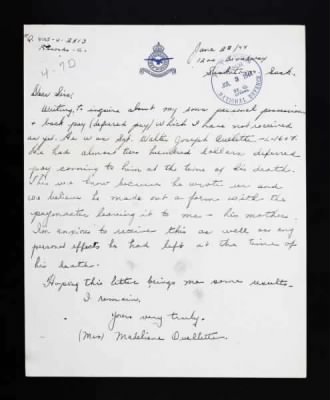 June 28/44
1200 Broadway
Saskatoon Sask.
JUL 3 1944
NATIONAL DEFENCE
4-70
Dear Sir;
Writing to inquire about my sons personal possessions
& back pay (deferred pay) which I have not received
as yet. He was Sgt. Walter Joseph Ouellette
He had almost two hundred dollars deferred
pay coming to him at the time of his death.
This we know because he wrote us and
we believe he made out a form with the
paymaster leaving it to me - his mother.
I'm anxious to receive this as well as any
personal effects he had left at the time of
his death.
Hoping this letter brings me some results.
I remain,
Yours very truly.
(Mrs) Madeline Ouellette.